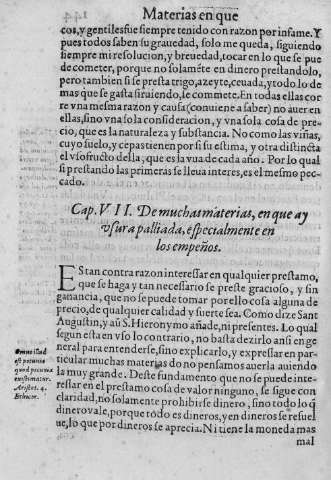 Materias en que
cos, y gentiles fue siempre tenido con razon por infame. Y
pues todos saben su grauedad, solo me queda, siguiendo
siempre mi resolucion, y breuedad, tocar en lo que se pue
de cometer, porque no solamẽte en dinero prestandolo,
pero tambien si se presta trigo, azeyte, ceuada, y todo lo de
mas que se gasta siruiendo, se commete. En todas ellas cor
re vna mesma razon y causa (conuiene a saber) no auer en
ellas, sino vna sola consideracion, y vna sola cosa de pre-
cio, que es la naturaleza y substancia. No como las viñas,
cuyo suelo, y cepas tienen por si su estima, y otra distincta
el vsofructo della, que es la vua de cada año. Por lo qual
si prestando las primeras se lleua interes, es el mesmo pec-
cado.
Cap. VII. De muchas materias, en que ay
vsura palliada, especialmente en
los empeños.
Es tan contra razon interessar en qualquier prestamo,
que se haga y tan necessario se preste gracioso, y sin
ganancia, que no se puede tomar por ello cosa alguna de
precio, de qualquier calidad y suerte sea. Como dize Sant
Augustin, y aũ S. Hieronymo añade, ni presentes. Lo qual
segun esta en vso lo contrario, no basta dezirlo ansi en ge
neral para entenderse, sino explicarlo, y expressar en par-
ticular muchas materias do no pensamos auerla auiendo
la muy grande. Deste fundamento que no se puede inte-
ressar en el prestamo cosa de valor ninguno, se sigue con
claridad, no solamente prohibirse dinero, sino todo lo q̃
dinero vale, porque todo es dineros, y en dineros se resuel
ue, lo que por dineros se aprecia. Ni tiene la moneda mas
mal
Omne illud
est pecunia
quod pecunia
existimatur.
Aristot. 4.
Ethicor.